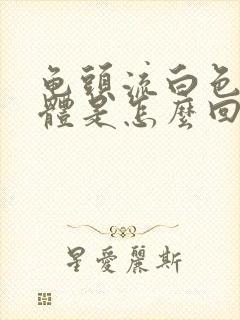 龟頭流白色
體是怎麼回
星愛麗斯